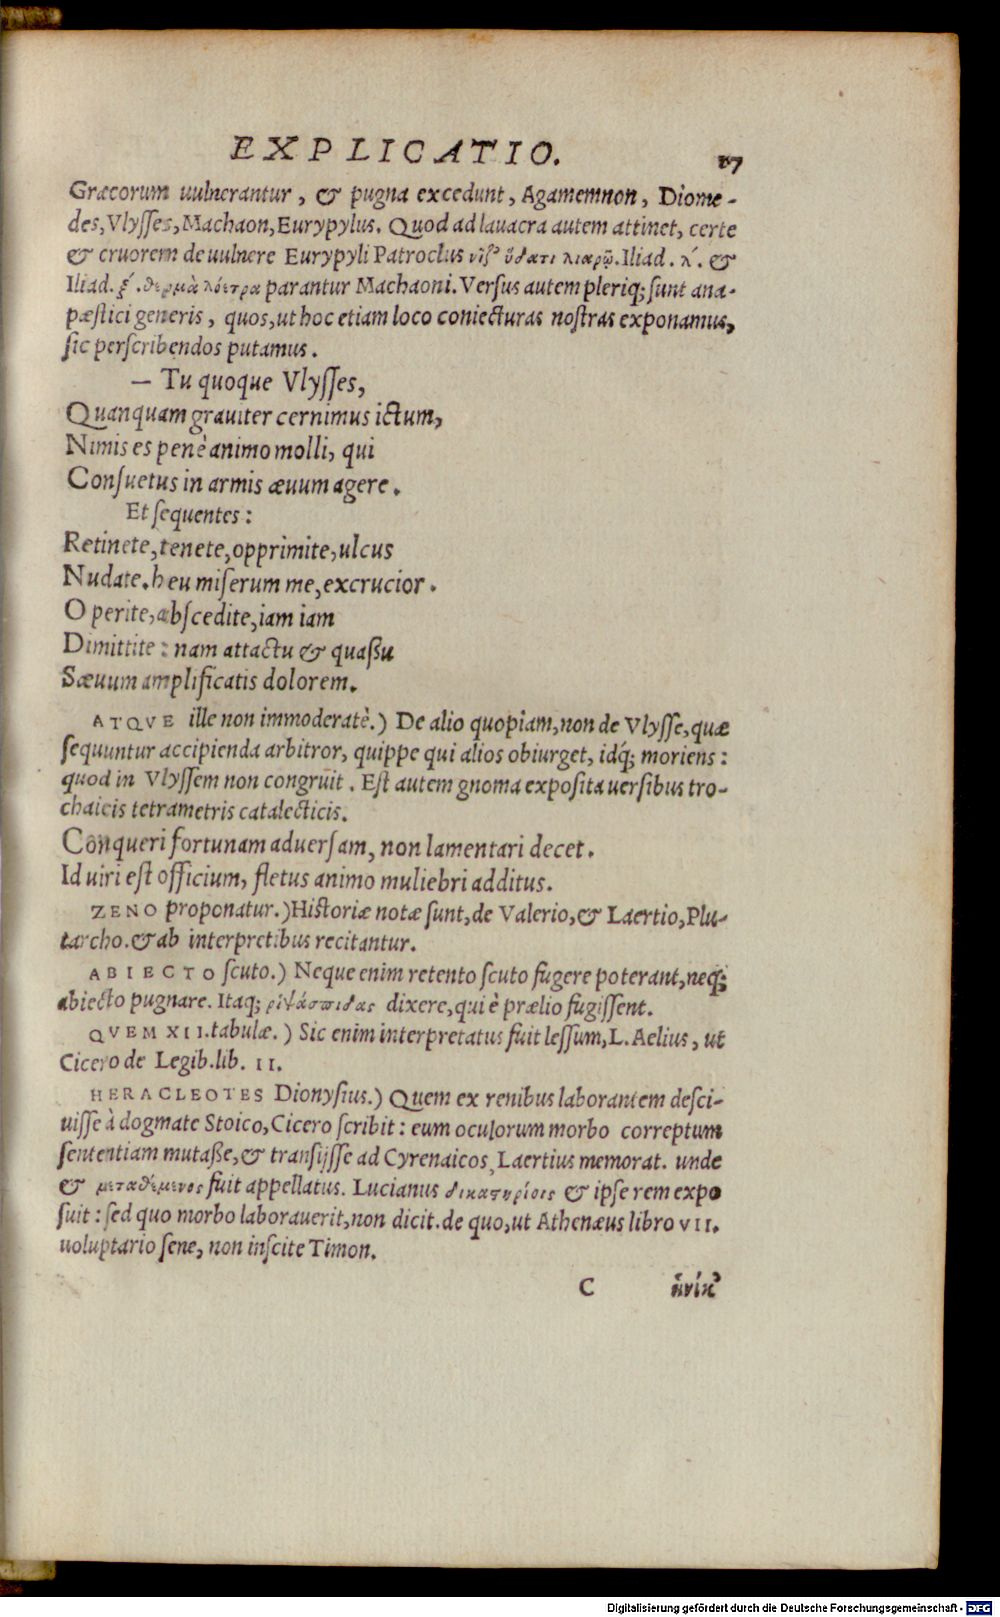 EXPLICATIO. 17
Græcorum uulnerantur, & pugna excedunt, Agamemnon, Diome-
des, Vlyſſes, Machaon, Eurypylus. Quod ad lauacra autem attinet, certe
& cruorem de uulnere Eurypyli Patroclus νίζ' ὕδατι λιαρῷ. Iliad. λ'. &
Iliad. ξ'. θερμὰ λόετρα parantur Machaoni. Verſus autem pleriq; ſunt ana-
pæſtici generis, quos, ut hoc etiam loco coniecturas noſtras exponamus,
ſic perſcribendos putamus.
— Tu quoque Vlyſſes,
Quanquam grauiter cernimus ictum,
Nimis es penè animo molli, qui
Conſuetus in armis æuum agere.
Et ſequentes:
Retinete, tenete, opprimite, ulcus
Nudate. heu miſerum me, excrucior.
Operite, abſcedite, iam iam
Dimittite: nam attactu & quaßu
Sæuum amplificatis dolorem.
ATQVE ille non immoderatè.) De alio quopiam, non de Vlyſſe, quæ
ſequuntur accipienda arbitror, quippe qui alios obiurget, idq́; moriens:
quod in Vlyſſem non congruit. Eſt autem gnoma expoſita uerſibus tro-
chaicis tetrametris catalecticis.
Conqueri fortunam aduerſam, non lamentari decet.
Id uiri eſt officium, fletus animo muliebri additus.
ZENO proponatur.) Hiſtoriæ notæ ſunt, de Valerio, & Laertio, Plu-
tarcho. & ab interpretibus recitantur.
ABIECTO ſcuto.) Neque enim retento ſcuto fugere poterant, neq;
abiecto pugnare. Itaq; ῥιψάσπιδας dixere, qui è prælio fugiſſent.
QVEM XII. tabulæ.) Sic enim interpretatus fuit leſſum, L. Aelius, ut
Cicero de Legib. lib. II.
HERACLEOTES Dionyſius.) Quem ex renibus laborantem deſci-
uiſſe à dogmate Stoico, Cicero ſcribit: eum oculorum morbo correptum
ſententiam mutaße, & tranſijſſe ad Cyrenaicos, Laertius memorat. unde
& μεταθέμενος fuit appellatus. Lucianus δικατηρίοις & ipſe rem expo
ſuit: ſed quo morbo laborauerit, non dicit. de quo, ut Athenæus libro VII.
uoluptario ſene, non inſcite Timon.
C ἡνίκ'
Digitalisierung gefördert durch die Deutsche Forschungsgemeinschaft - DFG